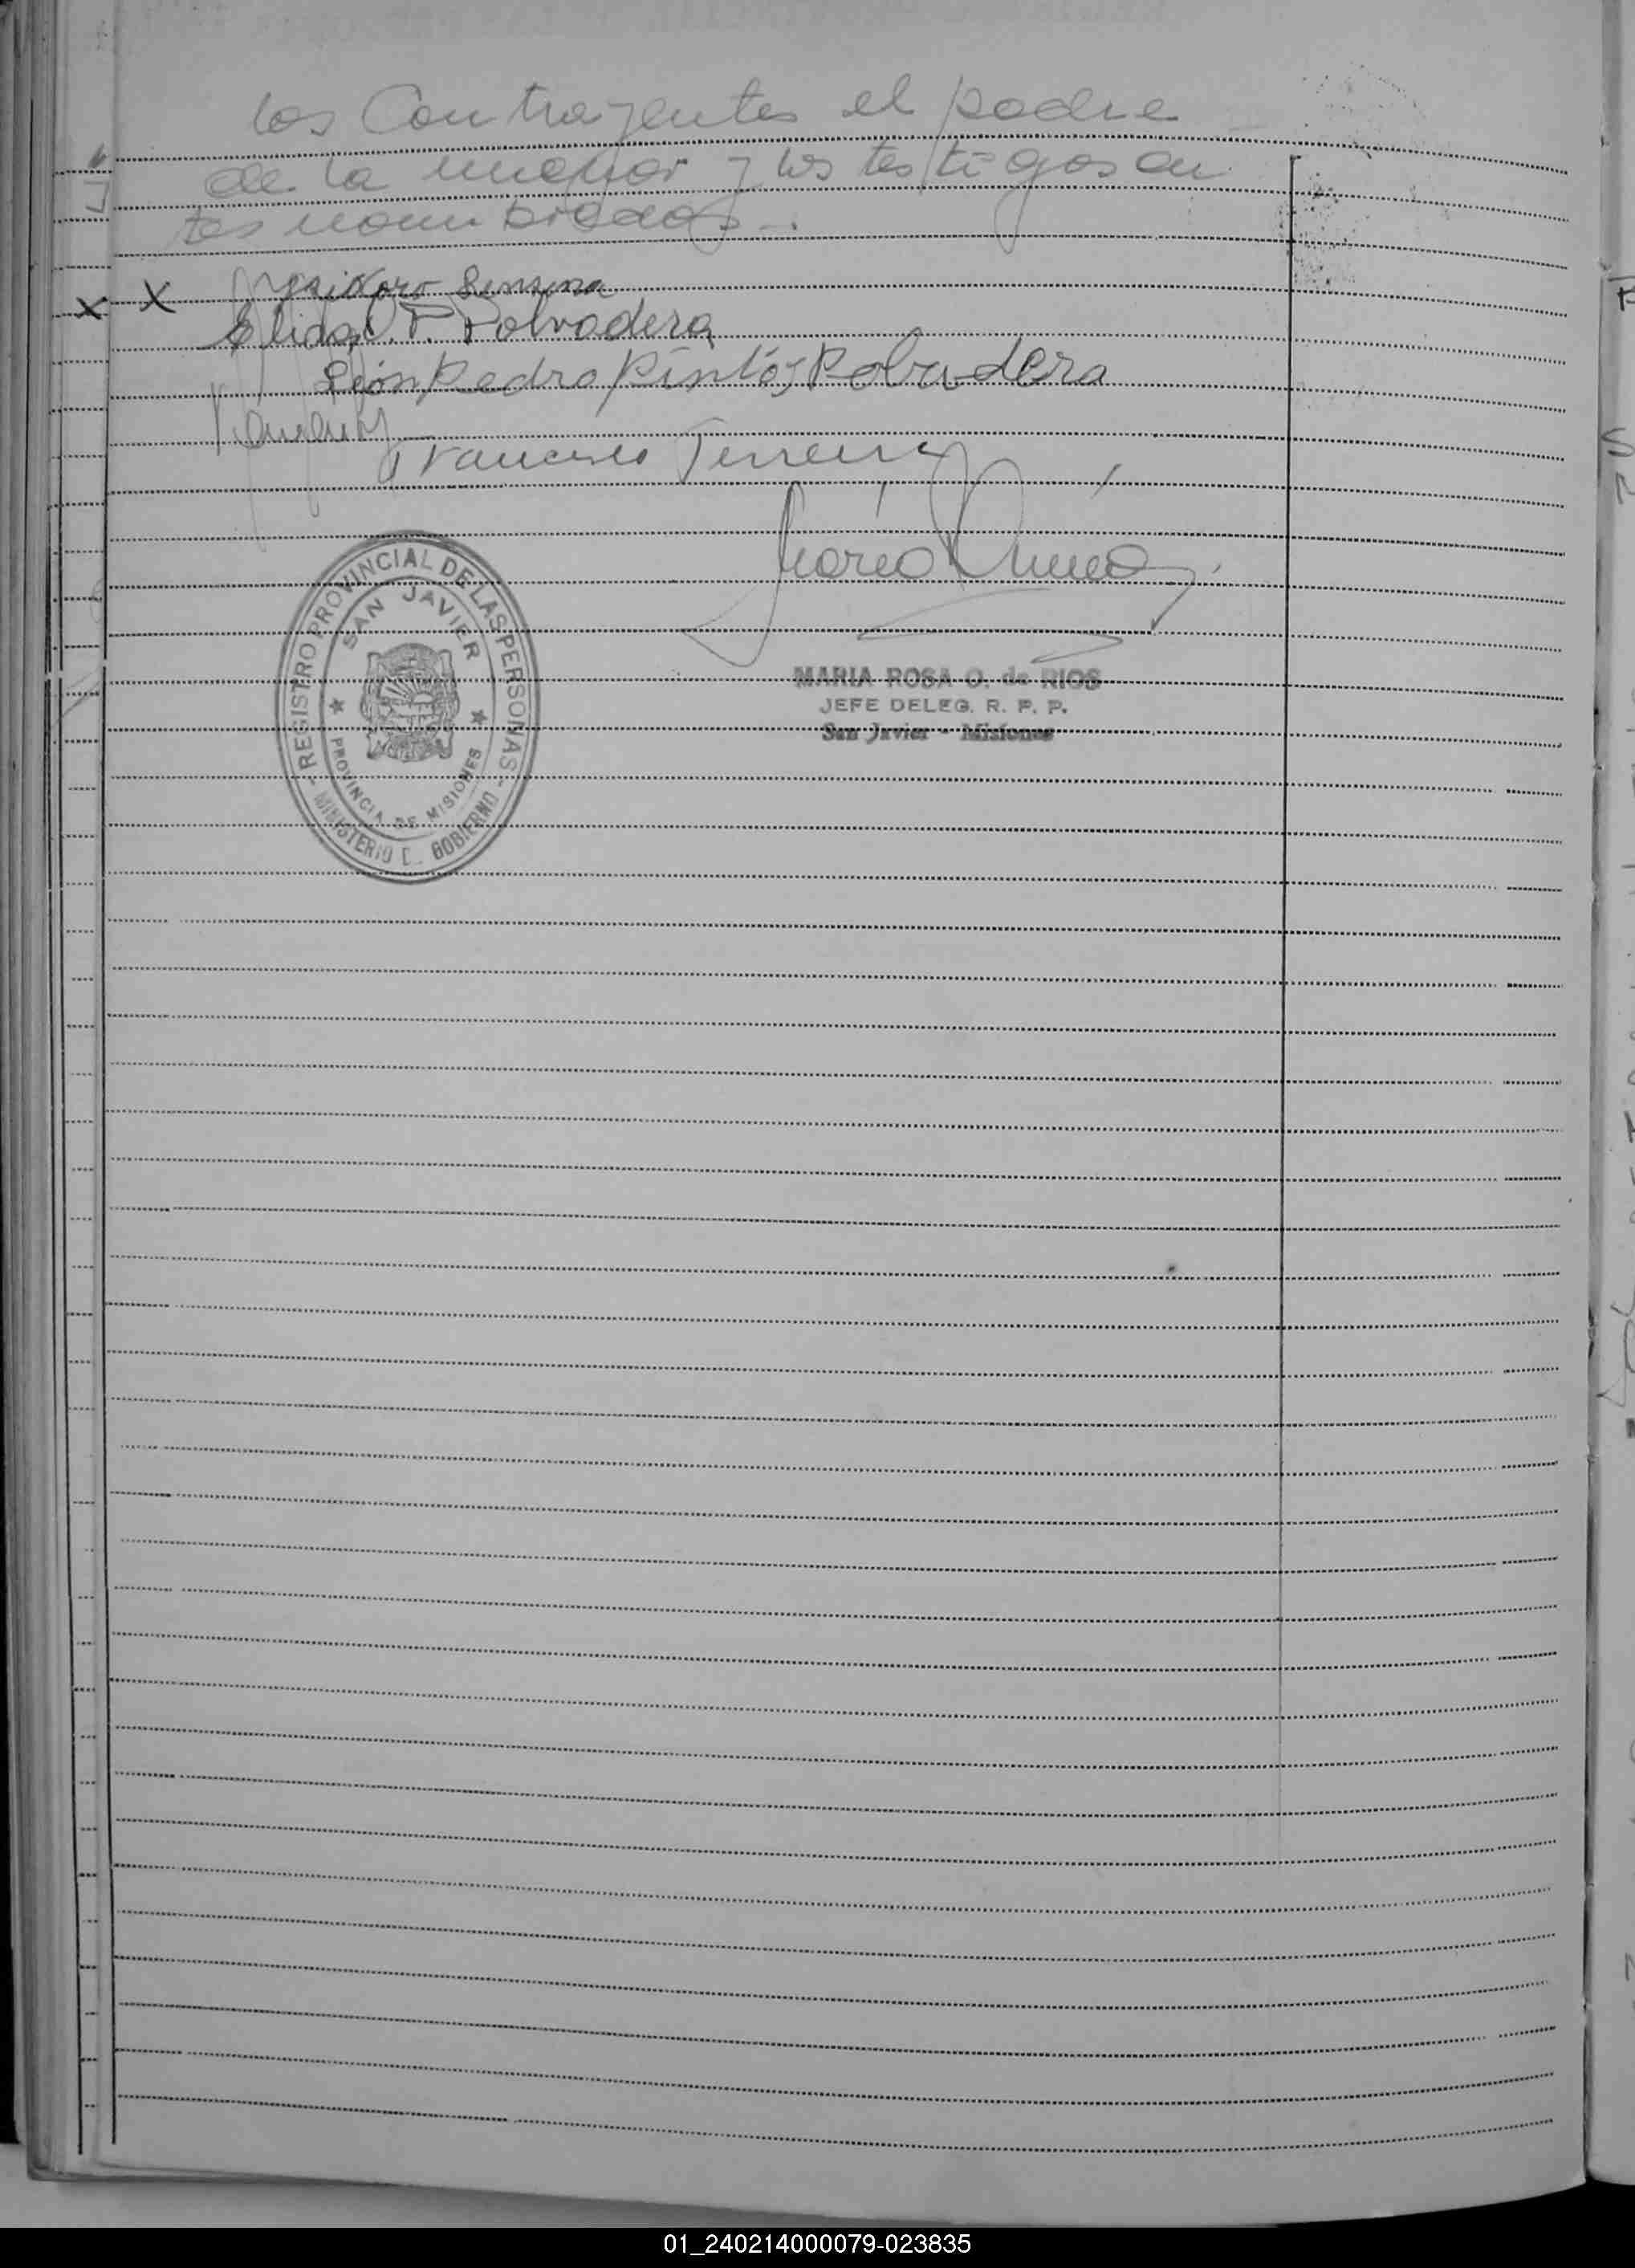 los Contrayentes el padre
de la menor y los testigos an
tes nombrados.-
X X Ysidoro Sensena
Elida P. Polvadera
León Pedro Pinto, Polvadera
Francisco Ferreira
REGISTRO PROVINCIAL DE LAS PERSONAS
SAN JAVIER
PROVINCIA DE MISIONES
MINISTERIO DE GOBIERNO
MARIA ROSA O. de RIOS
JEFE DELEG. R. P. P.
San Javier - Misiones
01_240214000079-023835